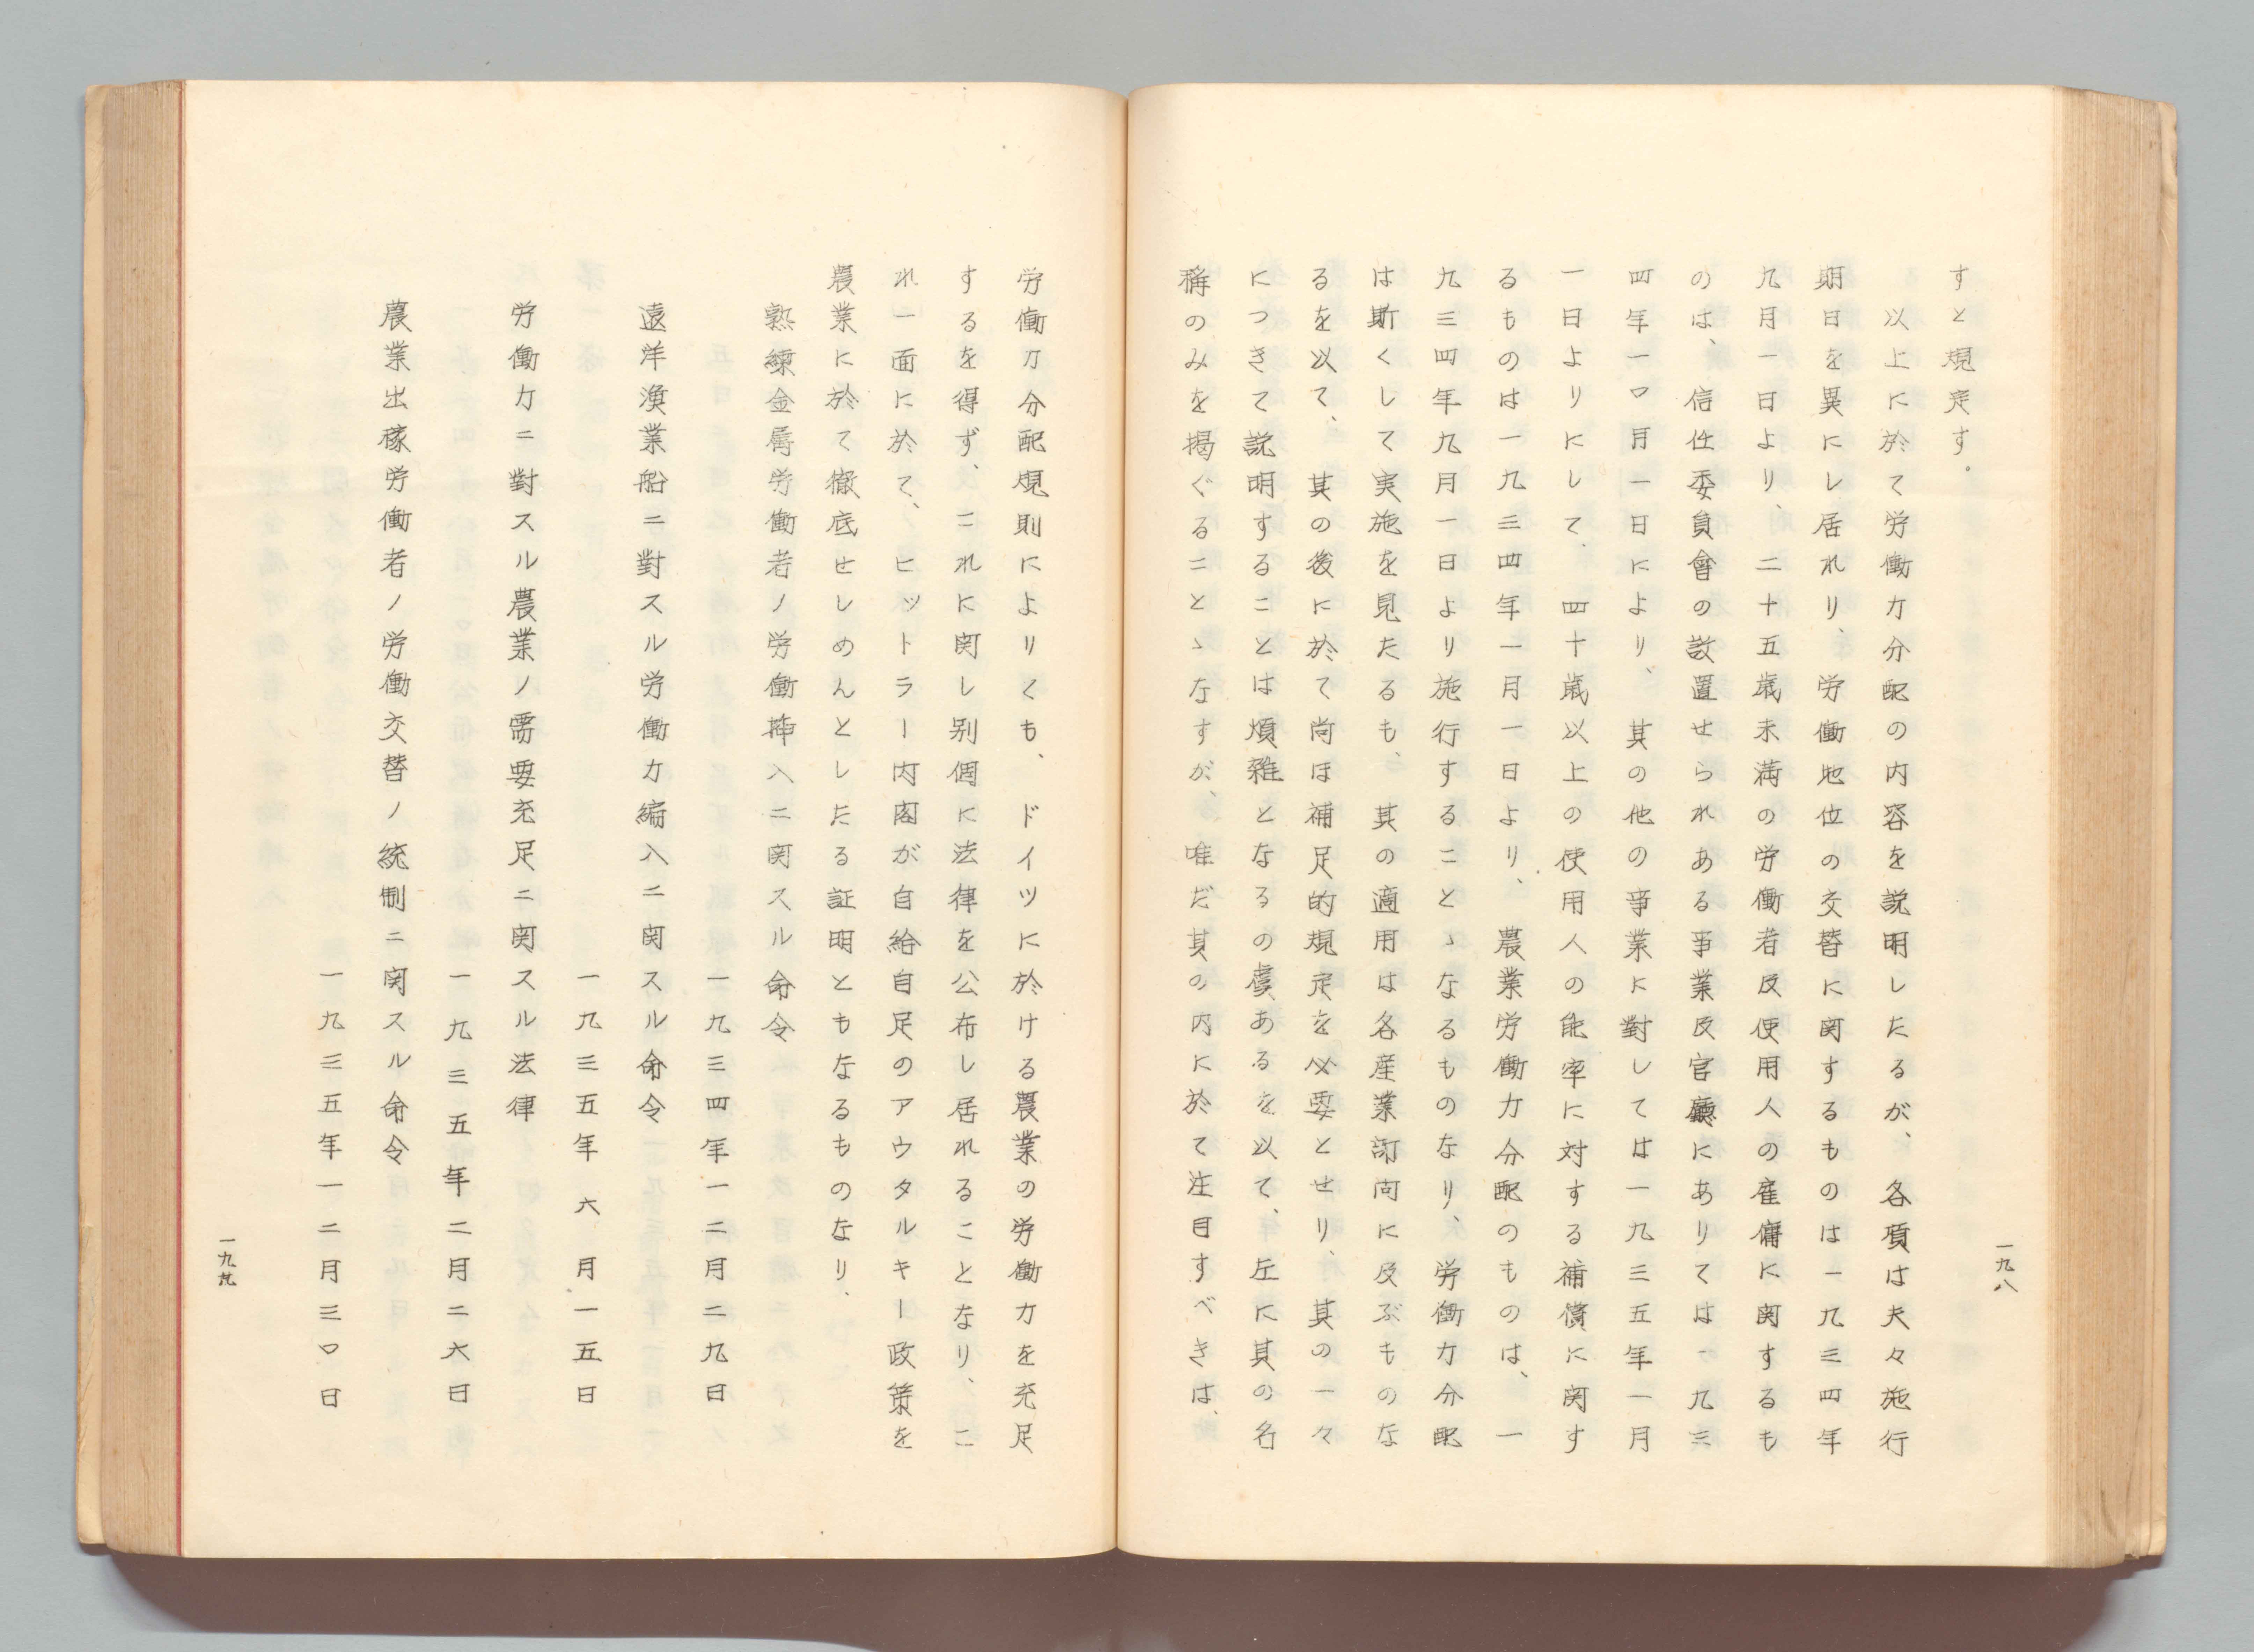 すと規定す。
以上に於て労働力分配の内容を説明したるが、各項は夫々施行
期日を異にし居れり、労働地位の交替に関するものは一九三四年
九月一日より、二十五歳未満の労働者及使用人の雇傭に関するも
のは、信任委員會の設置せられある事業及官廳にありては一九三
四年一〇月一日により、其の他の事業に對しては一九三五年一月
一日よりにして、四十歳以上の使用人の能率に対する補償に関す
るものは一九三四年一月一日より、農業労働力分配のものは、一
九三四年九月一日より施行することゝなるものなり、労働力分配
は斯くして実施を見たるも、其の適用は各産業部向に及ぶものな
るを以て、其の後に於て尚ほ補足的規定を必要とせり、其の一々
につきて説明することは煩雑となるの虞あるを以て、左に其の名
稱のみを掲ぐることゝなすが、唯だ其の内に於て注目すべきは、
一九八
労働力分配規則によりても、ドイツに於ける農業の労働力を充足
するを得ず、これに関し別個に法律を公布し居れることなり、こ
れ一面に於て、ヒットラー内閣が自給自足のアウタルキー政策を
農業に於て徹底せしめんとしたる証明ともなるものなり、
熟練金属労働者ノ労働挿入ニ関スル命令
一九三四年一二月二九日
遠洋漁業船ニ對スル労働力編入ニ関スル命令
一九三五年六月一五日
労働力ニ對スル農業ノ需要充足ニ関スル法律
一九三五年二月二六日
農業出稼労働者ノ労働交替ノ統制ニ関スル命令
一九三五年一二月三〇日
一九九